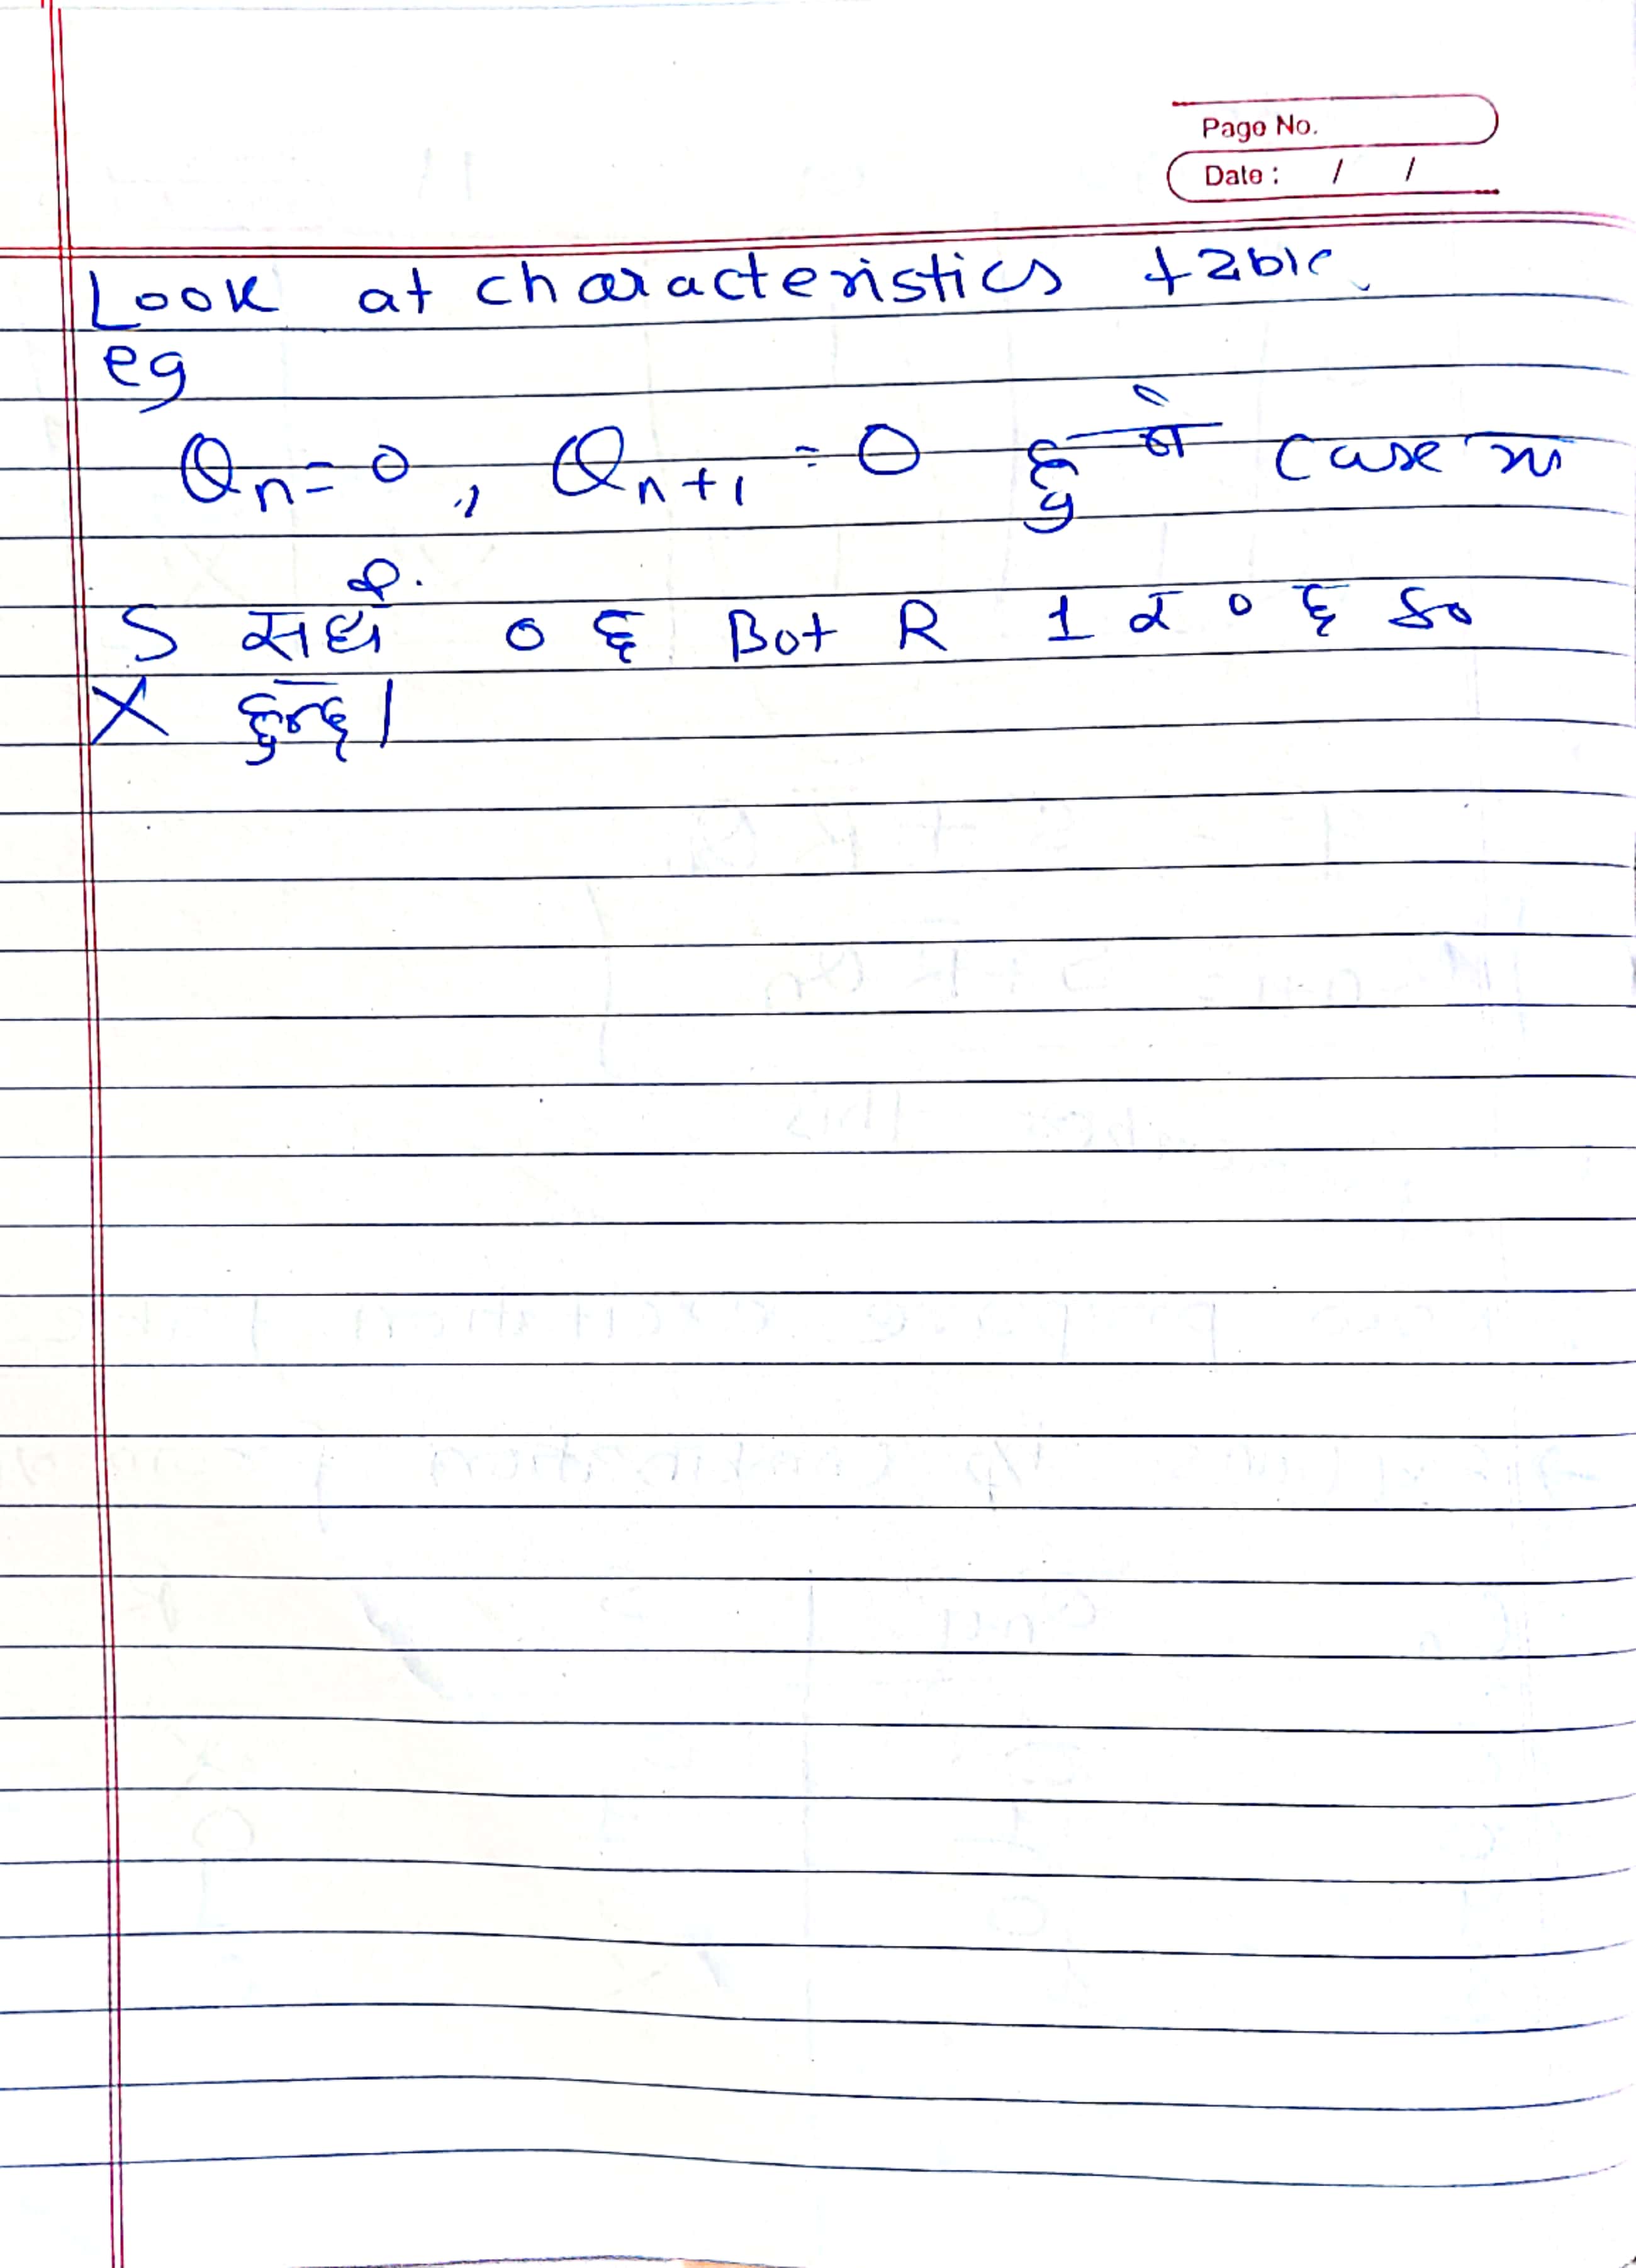 Page No.
Date : / /
Look at characteristics table
eg
Qn = 0, Qn+1 = 0 हुने case मा
S सधैं 0 छ But R 1 र 0 छ so
X हुन्छ।